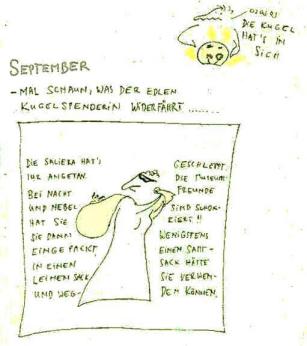 DIE KUGEL
HAT'S IN
SICH
SEPTEMBER
- MAL SCHAUN, WAS DER EDLEN
KUGELSPENDERIN WIDERFÄHRT ........
DIE SALIERA HAT'S
IHR ANGETAN.
BEI NACHT
UND NEBEL
HAT SIE
SIE DANN
EINGEPACKT
IN EINEN
LEINENSACK
UND WEG-
GESCHLEPPT.
DIE MUSEUM-
FREUNDE
SIND SCHOK-
KIERT!!
WENIGSTENS
EINEN SAMT-
SACK HÄTTE
SIE VERWEN-
DEN KÖNNEN.